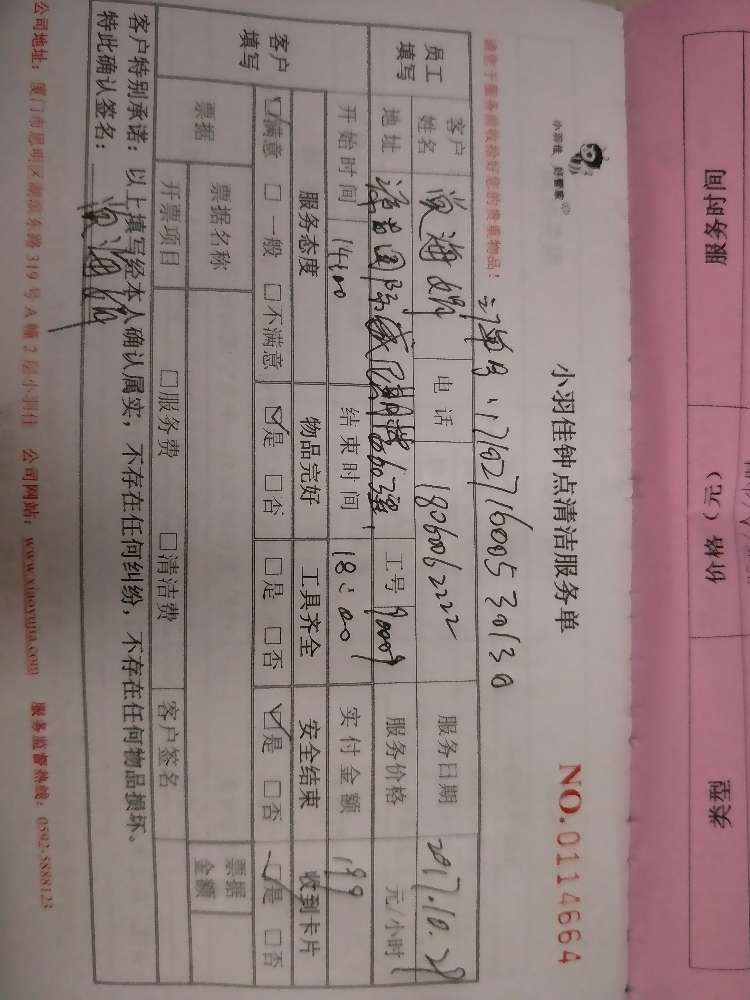 服务时间
价格（元）
类型
小羽佳 好管家
小羽佳钟点清洁服务单
NO.0114664
请您于服务前收拾好您的贵重物品！
171027160053
员工填写
客户姓名
海
电话
18060062222
服务日期
2017.10.29
地址
国际
工号
90009
服务价格
元/小时
客户填写
开始时间 14:00
结束时间 18:00
实付金额 199
服务态度 物品完好 工具齐全 安全结束 收到卡片
☑满意 □一般 □不满意 ☑是 □否 □是 □否 ☑是 □否 ☑是 □否
票据
票据名称
票据金额
开票项目 □服务费 □清洁费 客户签名
客户特别承诺：以上填写经本人确认属实，不存在任何纠纷，不存在任何物品损坏。
特此确认签名：
公司地址：厦门市思明区湖滨东路319号A幢2层小羽佳 公司网站：www.xiaoyujia.com 服务监督热线：0592-5888123